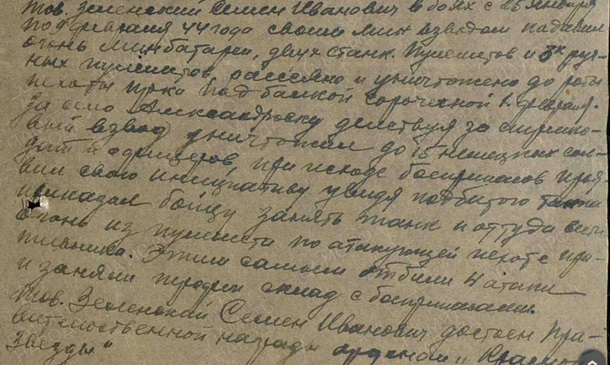 тов. Зеленский Семен Иванович в боях с 25 января
по февраля 44 года своим мин взводом подавил
огонь минбатареи, двух станк. пулеметов и 3х руч-
ных пулеметов рассеяно и уничтожено до роты
пехоты пр-ка под балкой 1 февраля.
За село Александровку действуя за стрелко-
вый взвод уничтожил до 15 немецких сол-
дат и офицеров при исходе боеприпасов проя-
вил свою инициативу увидя подбитого танка
приказал бойцу занять танк и оттуда вести
огонь из пулемета по атакующей пехоте про-
тивника. Этим самым отбили 4 атаки
и заняли склад с боеприпасами.
Тов. Зеленский Семен Иванович достоен Пра-
вительственной награды орденом "Красной
Звезды"